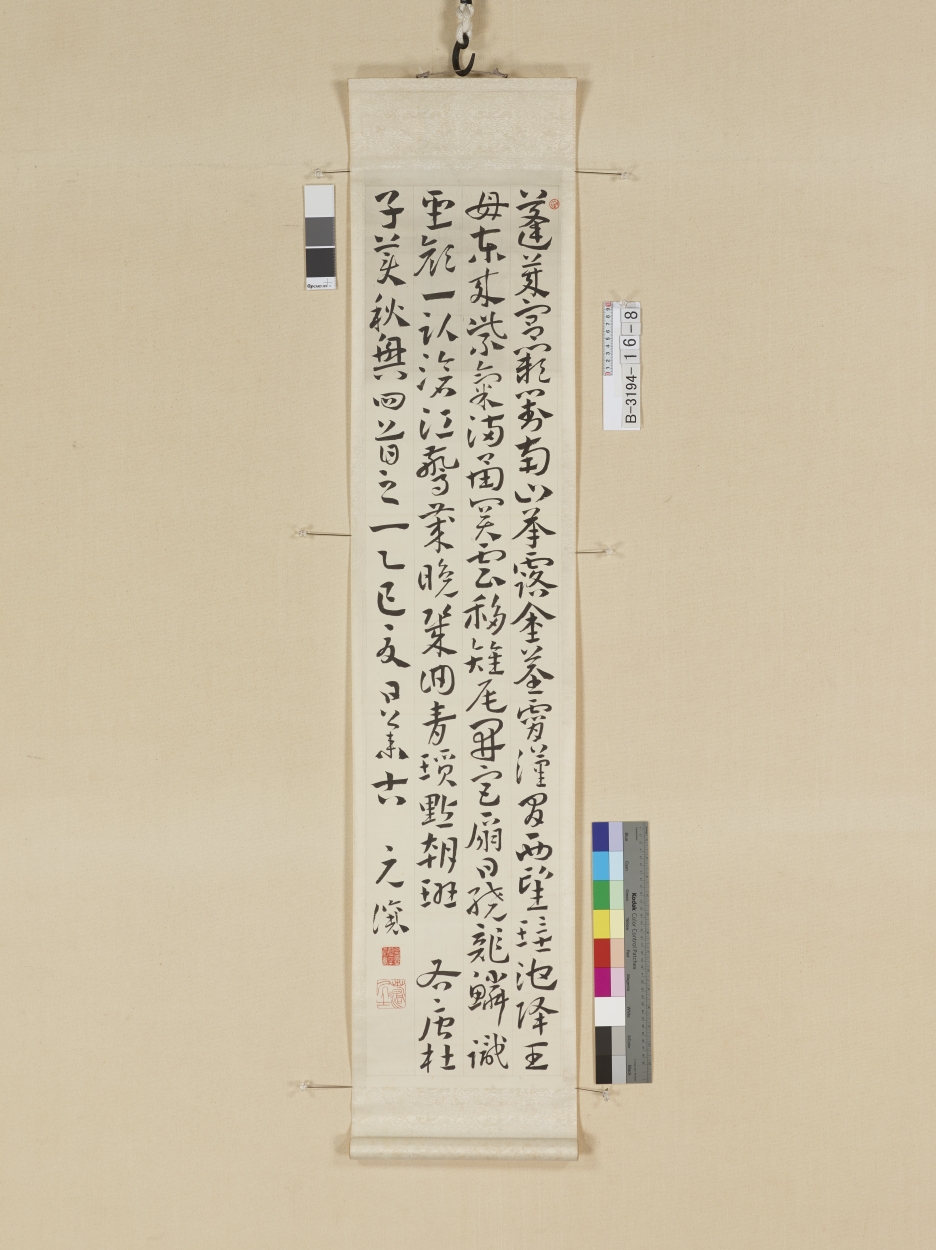 蓬萊宮闕對南山承露金莖霄漢間西望瑤池降王
母東來紫氣滿函關雲移雉尾開宮扇日繞龍鱗識
聖顏一臥滄江驚歲晚幾回青瑣點朝班 右唐杜
子美秋興四首之一乙巳夏日 元
B-3194-16-8
Kodak Color Control Patches